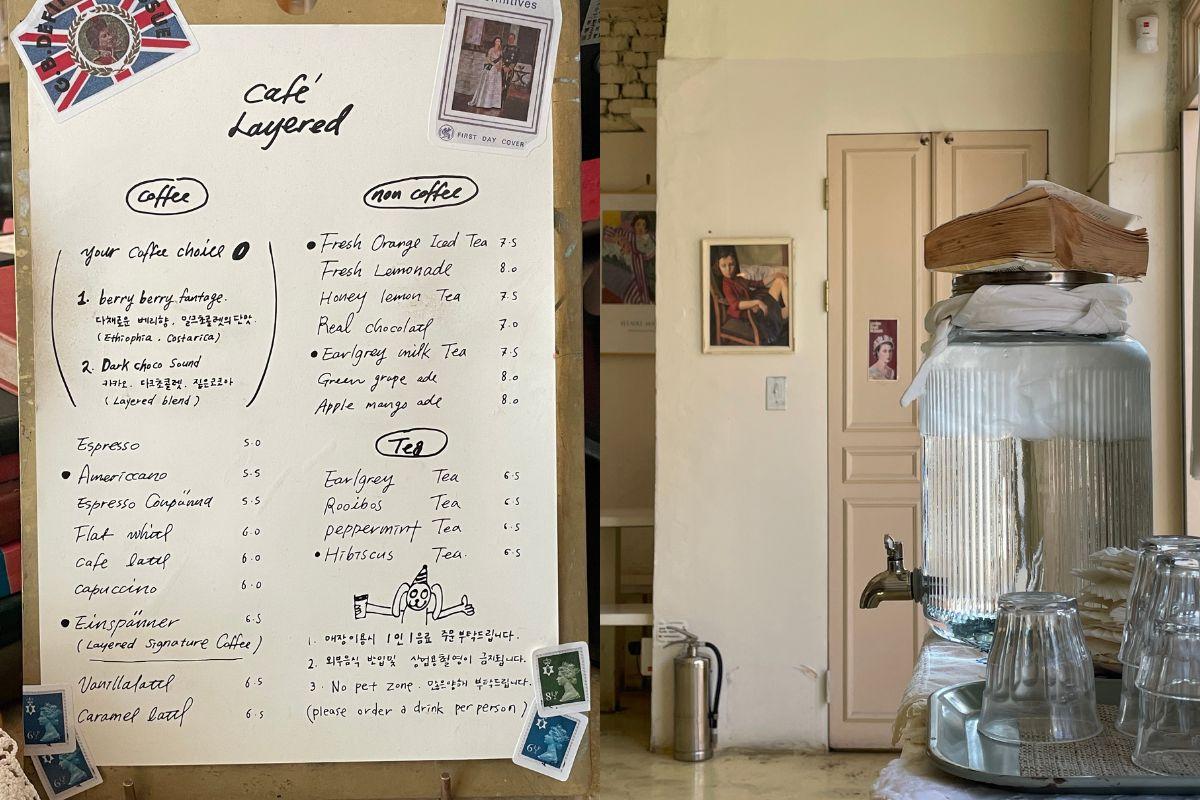 G.B. DEFI
SUE
FIRST DAY COVER
Café
Layered
Coffee
your coffee choice
1. berry berry fantage.
다채로운 베리향, 밀크초콜렛의 단맛.
(Ethiophia. Costarica)
2. Dark choco Sound
카카오. 다크초콜렛. 짙은코코아
(Layered blend)
Espresso 5.0
Americcano 5.5
Espresso Conpänna 5.5
Flat whitE 6.0
cafe lattE 6.0
capuccino 6.0
Einspänner 6.5
(Layered signature Coffee)
VanillalattE 6.5
Caramel lattE 6.5
non coffee
Fresh Orange Iced Tea 7.5
Fresh Lemonade 8.0
Honey lemon Tea 7.5
Real chocolatE 7.0
Earlgrey milk Tea 7.5
Green grape ade 8.0
Apple mango ade 8.0
Tea
Earlgrey Tea 6.5
Rooibos Tea 6.5
peppermint Tea 6.5
Hibiscus Tea. 6.5
1. 매장이용시 1인 1음료 주문 부탁드립니다.
2. 외부음식 반입및 상업용촬영이 금지됩니다.
3. No pet zone. 많은양해 부탁드립니다.
(please order a drink per person)
8½P
6½P